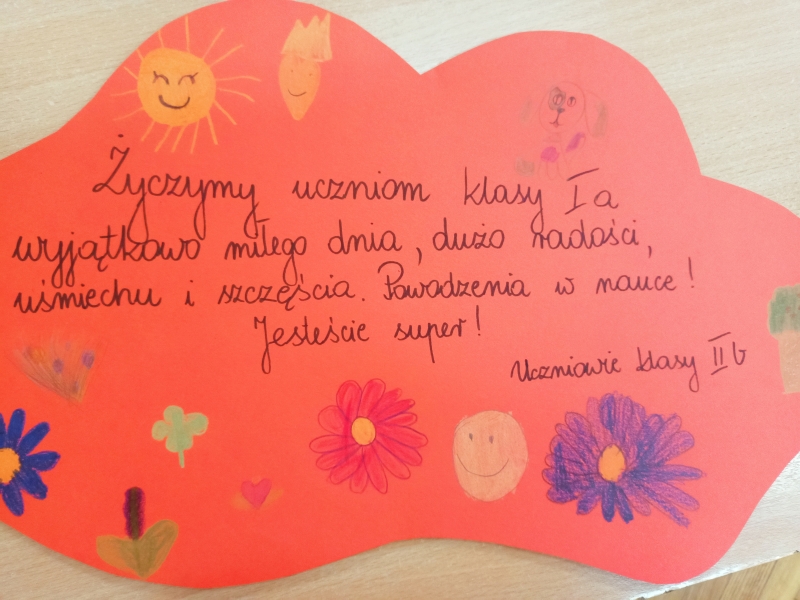 Życzymy uczniom klasy Ia
wyjątkowo miłego dnia, dużo radości,
uśmiechu i szczęścia. Powodzenia w nauce!
Jesteście super!
Uczniowie klasy II b